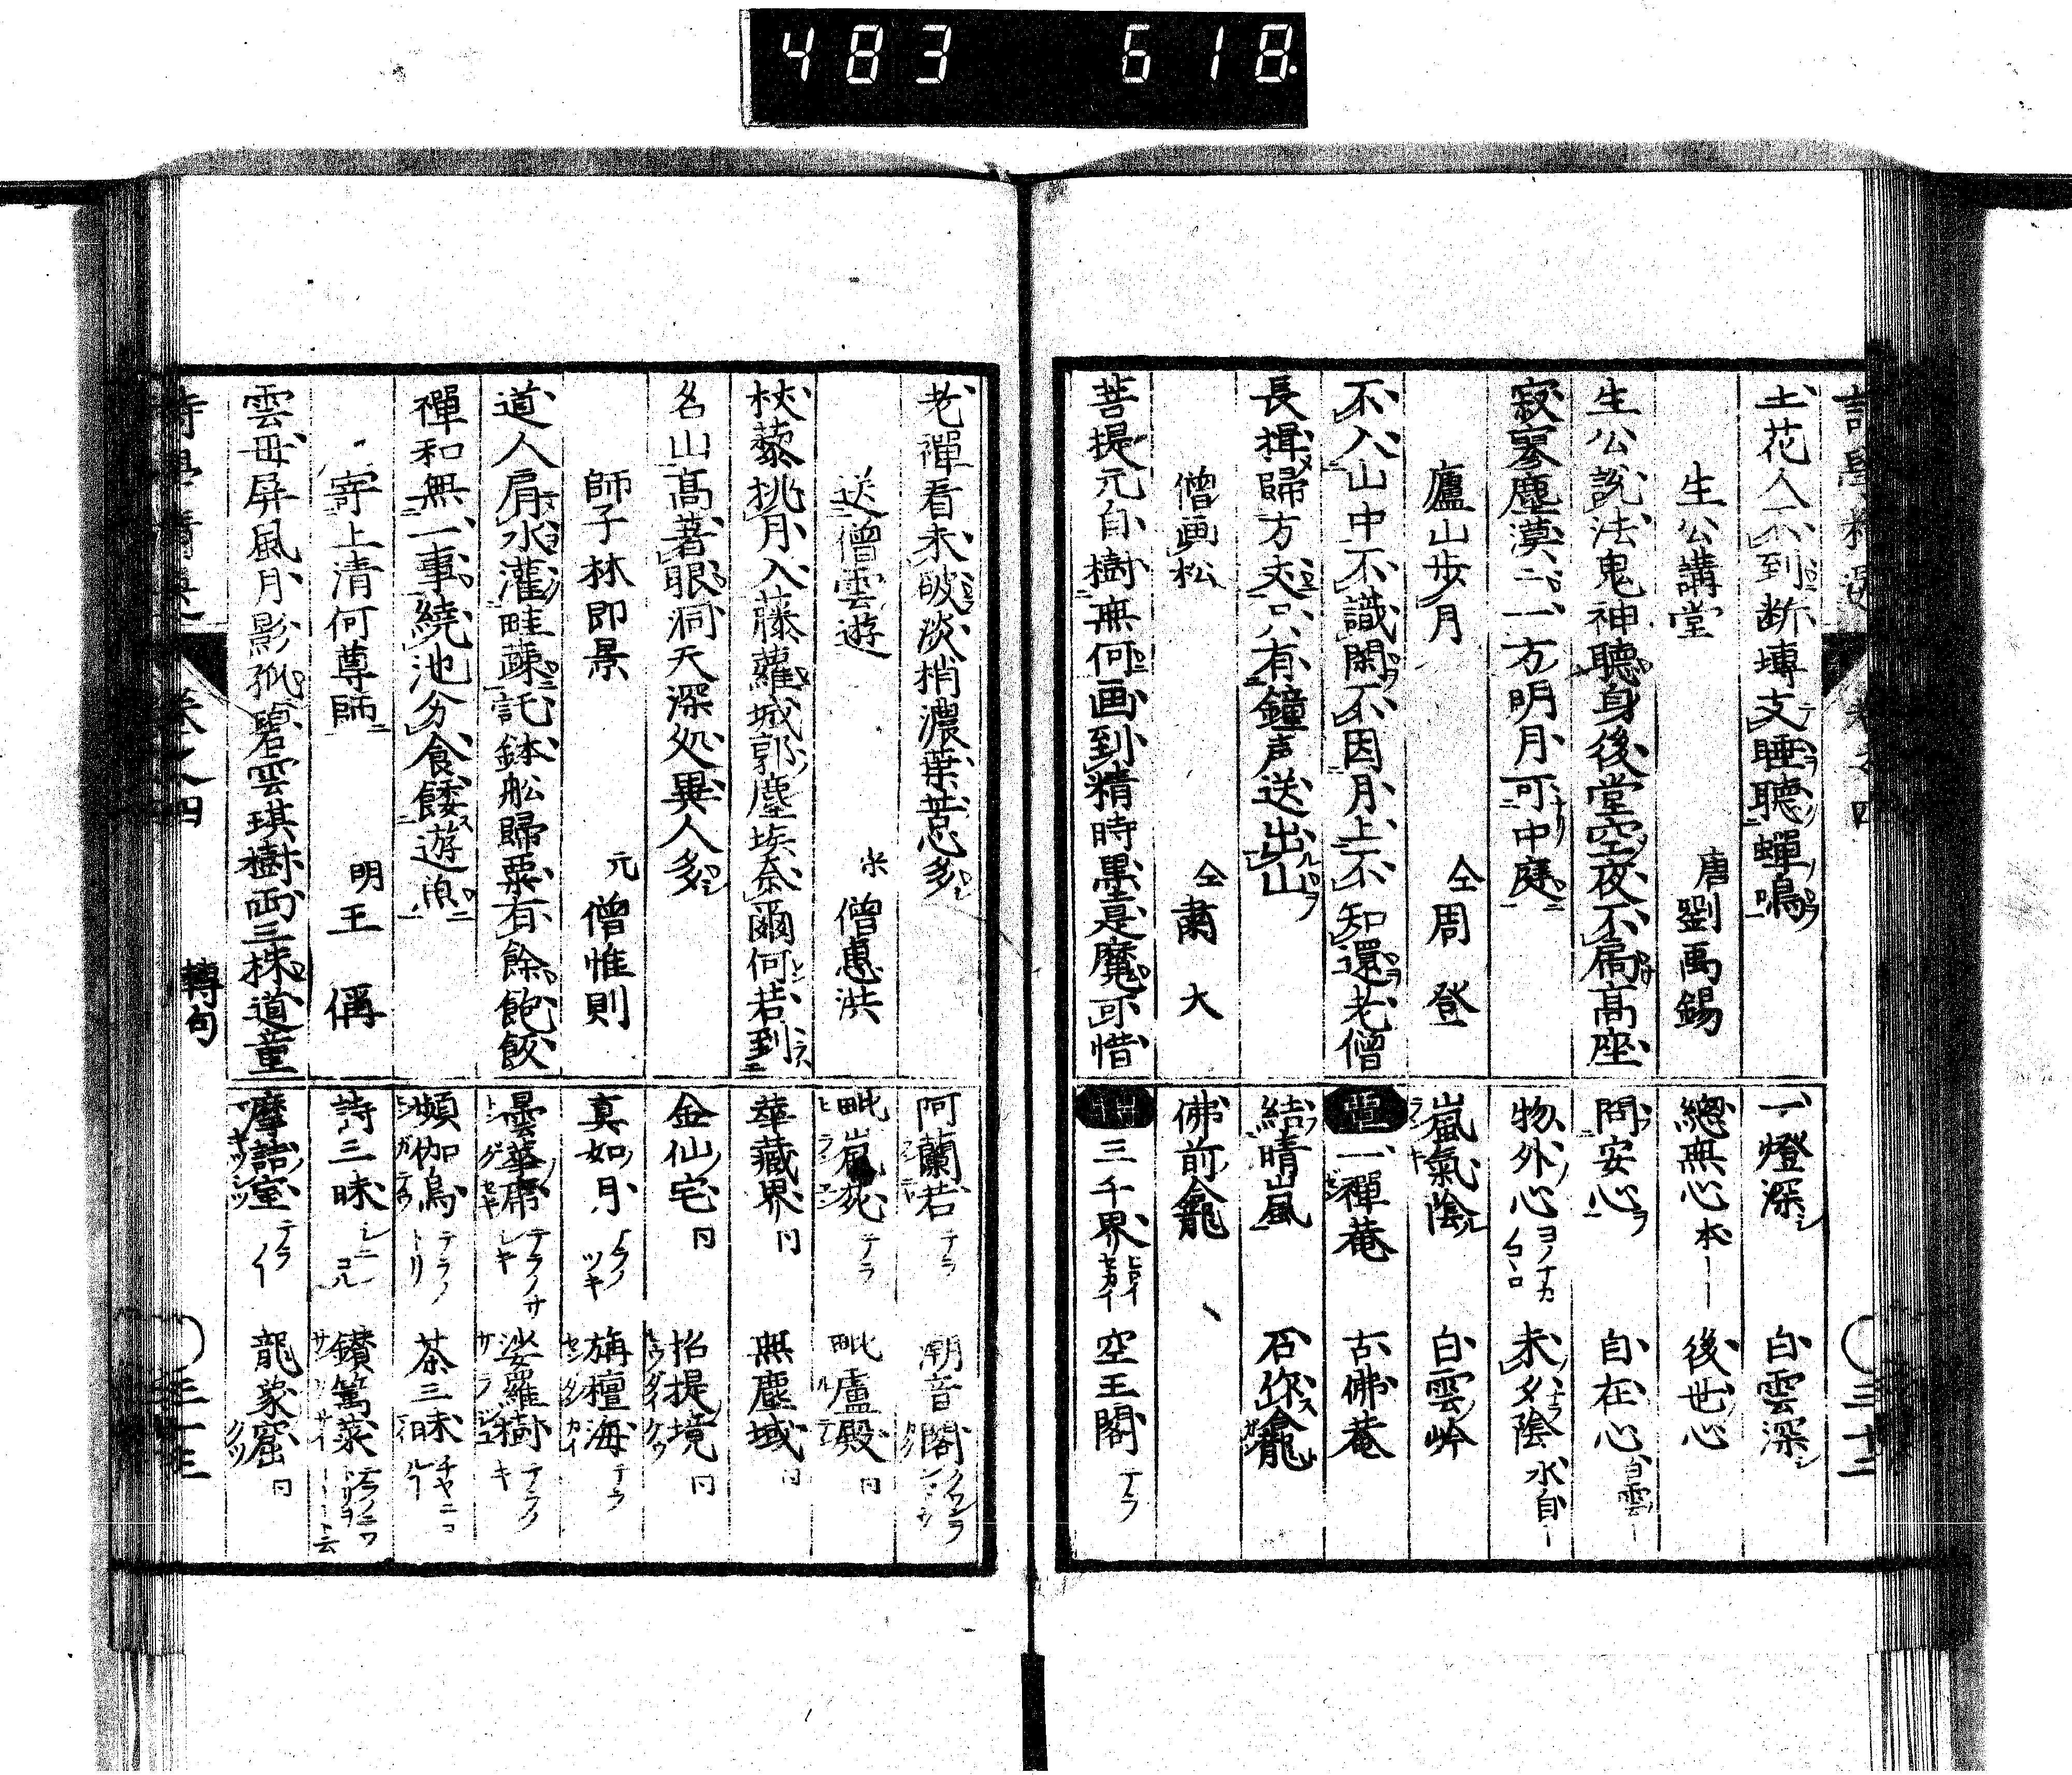 483 618.
土花人不到断塼支睡聽蟬鳴
生公講堂 唐劉禹錫
生公説法鬼神聽身後堂空夜不扃高座
寂寥塵漠〻一方明月可中庭
廬山歩月 仝周登
不入山中不識閑不因月上不知還老僧
長揖歸方丈只有鐘声送出山
僧画松 仝蕭大
菩提元自樹無何画到精時墨是魔可惜
一燈深 白雲深
總無心 本一 後世心
問安心 自在心 白雲一
物外心 ヨノナカノコヽロ 未夕陰 水自一
嵐氣陰 白雲岑
一禪菴 古佛菴
結晴嵐 石作龕
佛前龕
三千界 空王閣 テラ
三十二
老禪看未破淡梢濃葉惹多
送僧雲遊 宋 僧惠洪
杖藜挑月入藤蘿城郭塵埃奈爾何若到
名山高著眼洞天深処異人多
師子林即景 元 僧惟則
道人肩水灌畦蔬託鉢舩歸粟有餘飽飯
禪和無一事繞池分食餧遊魚
寄上清何尊師 明王偁
雲母屏風月影孤碧雲琪樹両三株道童
阿蘭若 テラ 潮音閣
毗嵐苑 テラ 毗盧殿 同
華藏界 同 無塵域 同
金仙宅 同 招提境 同
真如月 テラノツキ 旃檀海 テラ
曇華席 テラノサシキ 娑羅樹 テラノキ
頻伽鳥 テラノトリ 茶三昧
詩三昧 鑚篱菜
摩詰室 テラ 龍象窟 同
卷之四 轉句